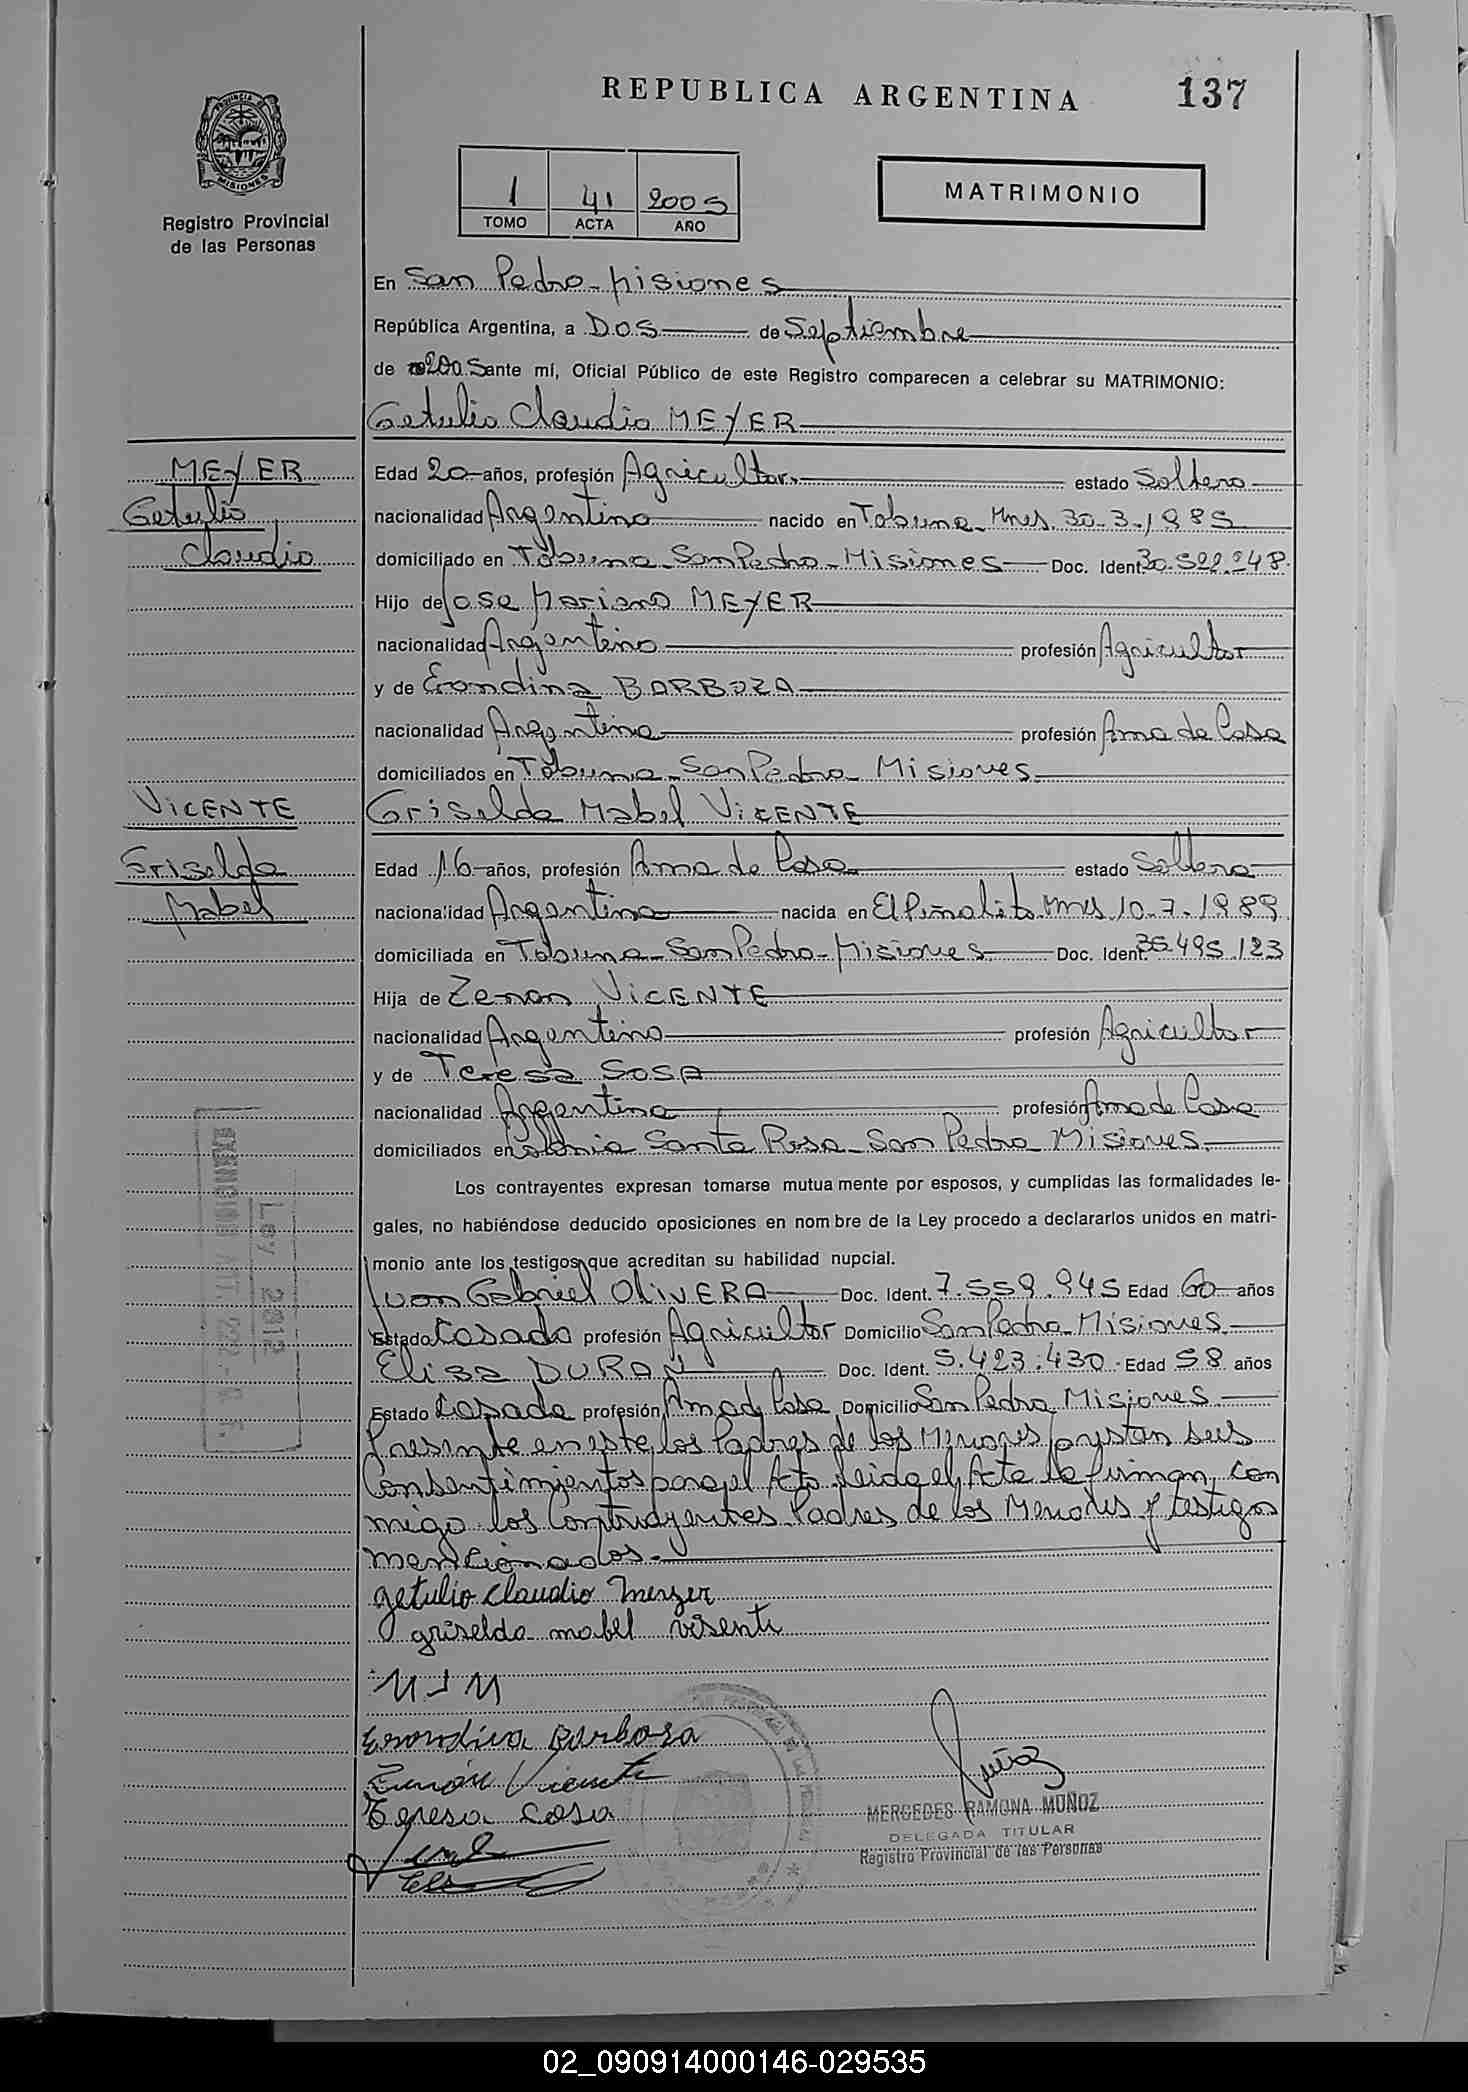 REPUBLICA ARGENTINA 137
PROVINCIA DE MISIONES
Registro Provincial
de las Personas
1 41 2005
TOMO ACTA AÑO
MATRIMONIO
En San Pedro - Misiones
República Argentina, a Dos de Septiembre
de 2005 ante mí, Oficial Público de este Registro comparecen a celebrar su MATRIMONIO:
Getulio Claudio MEYER
MEYER
Getulio
Claudio
Edad 20 años, profesión Agricultor estado Soltero
nacionalidad Argentino nacido en Tobuna - Mnes. 30-3-1985
domiciliado en Tobuna - San Pedro - Misiones Doc. Ident. 30.522.248
Hijo de Jose Mariano MEYER
nacionalidad Argentino profesión Agricultor
y de Erondina BARBOZA
nacionalidad Argentina profesión Ama de Casa
domiciliados en Tobuna - San Pedro - Misiones
VICENTE
Griselda
Mabel
Griselda Mabel VICENTE
Edad 16 años, profesión Ama de Casa estado Soltera
nacionalidad Argentina nacida en El Piñalito Mnes 10-7-1989
domiciliada en Tobuna - San Pedro - Misiones Doc. Ident. 35.495.123
Hija de Zenon VICENTE
nacionalidad Argentino profesión Agricultor
y de Teresa SOSA
nacionalidad Argentina profesión Ama de Casa
domiciliados en Colonia Santa Rosa - San Pedro - Misiones
Los contrayentes expresan tomarse mutuamente por esposos, y cumplidas las formalidades le-
gales, no habiéndose deducido oposiciones en nombre de la Ley procedo a declararlos unidos en matri-
monio ante los testigos que acreditan su habilidad nupcial.
Juan Gabriel OLIVERA Doc. Ident. 7.559.945 Edad 60 años
Estado Casado profesión Agricultor Domicilio San Pedro - Misiones
Elisa DURAN Doc. Ident. 5.423.430 Edad 58 años
Estado Casada profesión Ama d Casa Domicilio San Pedro Misiones
Presente en este los Padres de los Menores prestan sus
Consentimientos para el Acto leida el Acta la firman con
migo los Contrayentes Padres de los Menores y testigos
mencionados.
Ley 2812
getulio claudio meyer
griselda mabel visente
M J M
Erondina Barboza
Zenón Vicente
Teresa Sosa
Muñoz
MERCEDES RAMONA MUÑOZ
DELEGADA TITULAR
Registro Provincial de las Personas
02_090914000146-029535